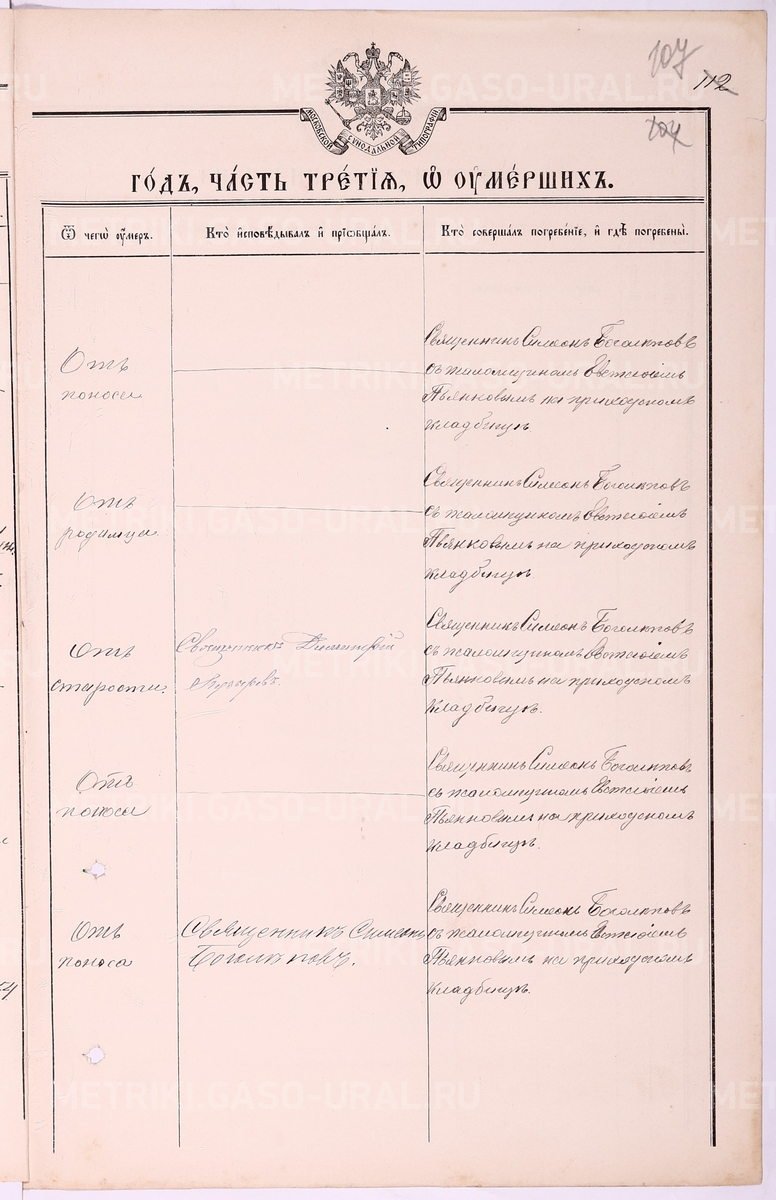 107
112
107
МОСКОВСКОЙ СѴНОДАЛЬНОЙ ТИПОГРАФІИ
ГО́ДЪ, ЧА́СТЬ ТРЕ́ТІЯ, Ѡ҆ ОУ҆МЕ́РШИХЪ.
Ѿ чегѡ̀ оу҆́меръ.
Кто̀ и҆сповѣ́дывалъ и҆ прїѡбща́лъ.
Кто̀ соверша́лъ погребе́нїе, и҆ гдѣ̀ погребены̀.
Отъ
поноса
Священникъ Симеонъ Боголѣповъ
съ псаломщикомъ Евгеніемъ
Пьянковымъ на приходскомъ
кладбищѣ.
Отъ
родимца.
Священникъ Симеонъ Боголѣповъ
съ псаломщикомъ Евгеніемъ
Пьянковымъ на приходскомъ
кладбищѣ.
Отъ
старости.
Священникъ Димитрій
Священникъ Симеонъ Боголѣповъ
съ псаломщикомъ Евгеніемъ
Пьянковымъ на приходскомъ
кладбищѣ.
Отъ
поноса
Священникъ Симеонъ Боголѣповъ
съ псаломщикомъ Евгеніемъ
Пьянковымъ на приходскомъ
кладбищѣ.
Отъ
поноса
Священникъ Симеонъ
Боголѣповъ.
Священникъ Симеонъ Боголѣповъ
съ псаломщикомъ Евгеніемъ
Пьянковымъ на приходскомъ
кладбищѣ.
METRIKI.GASO-URAL.RU